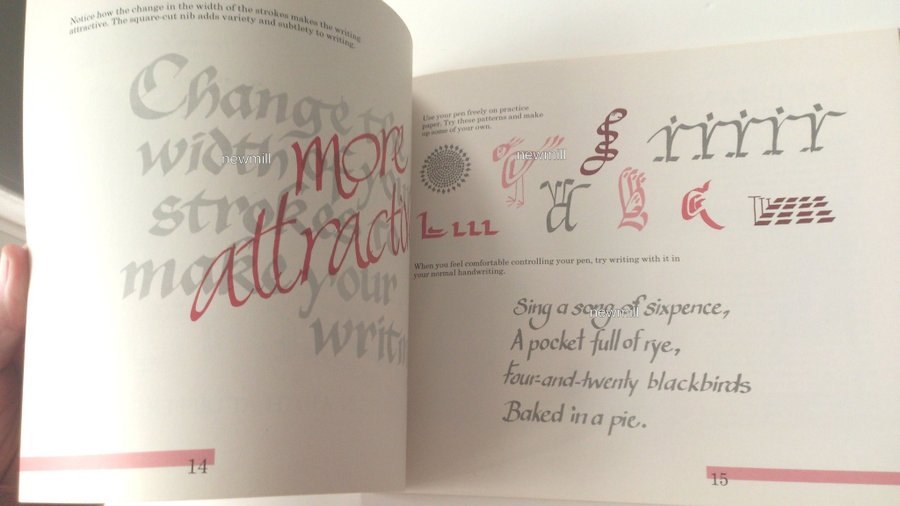 Notice how the change in the width of the strokes makes the writing
attractive. The square-cut nib adds variety and subtlety to writing.
Change
width
more
strokes
attracti
make your
writ
14
Use your pen freely on practice
paper. Try these patterns and make
up some of your own.
newmill
newmill
When you feel comfortable controlling your pen, try writing with it in
your normal handwriting.
Sing a song of sixpence,
newmill
A pocket full of rye,
Four-and-twenty blackbirds
Baked in a pie.
15